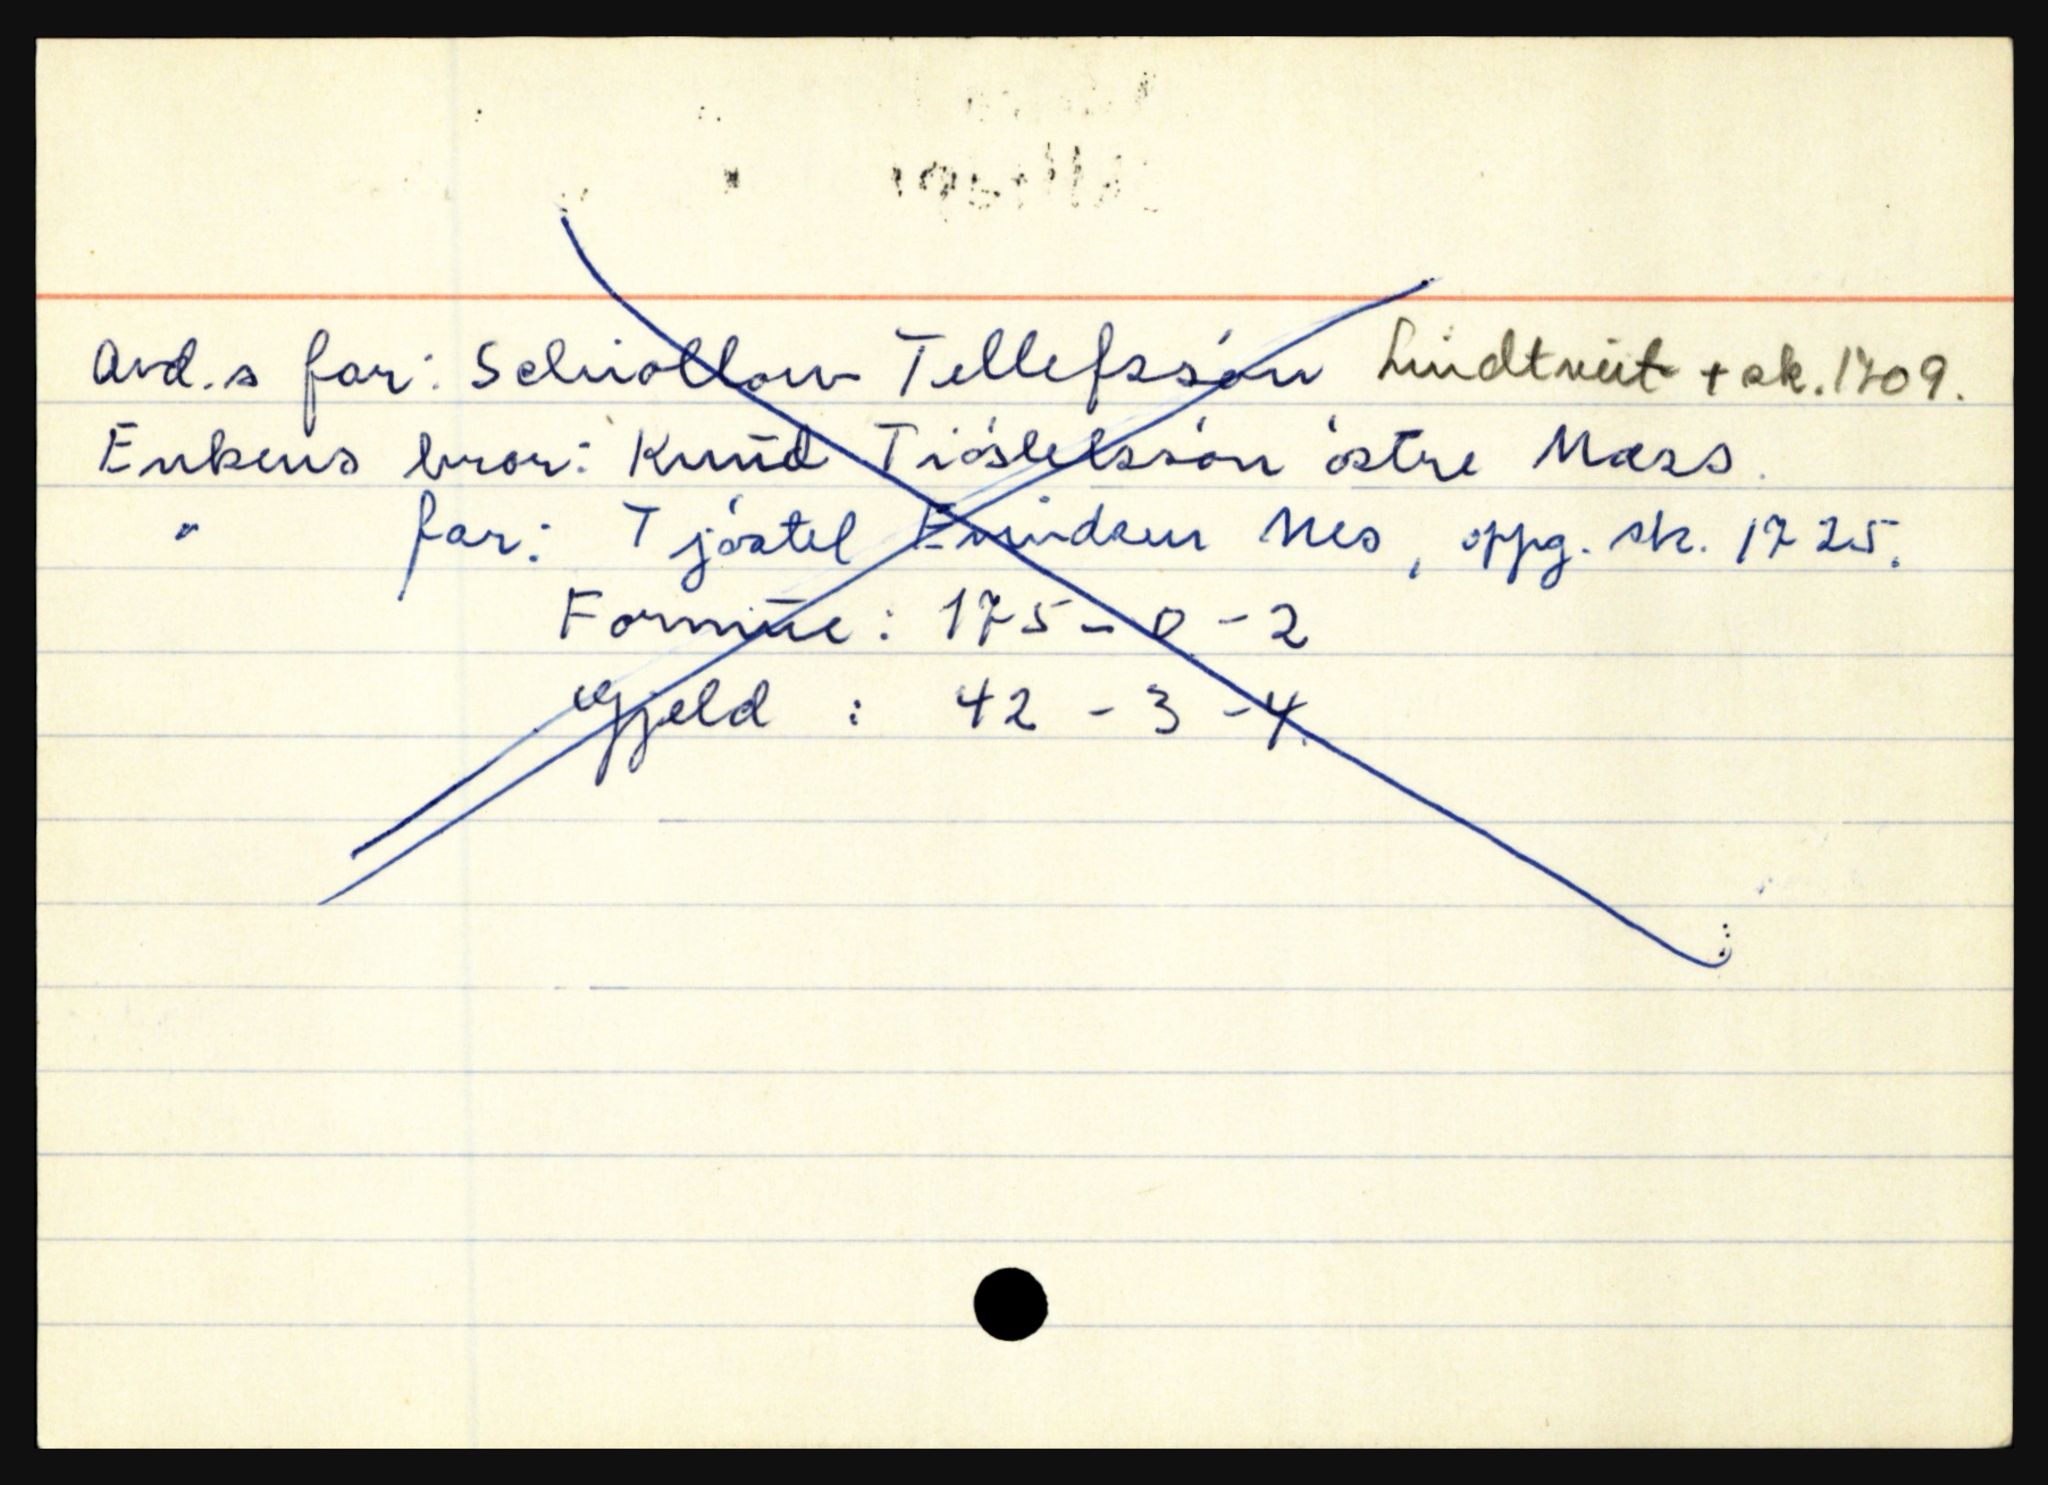 Avd.s far: Schiollou Tellefssón Lindtveit + sk. 1709.
Enkens bror: Knud Tióslelssón óstre Næss.
" far: Tjóstel Enindsen Nes, oppg. sk. 1725.
Formue: 175 - 0 - 2
Gjeld : 42 - 3 - 4.